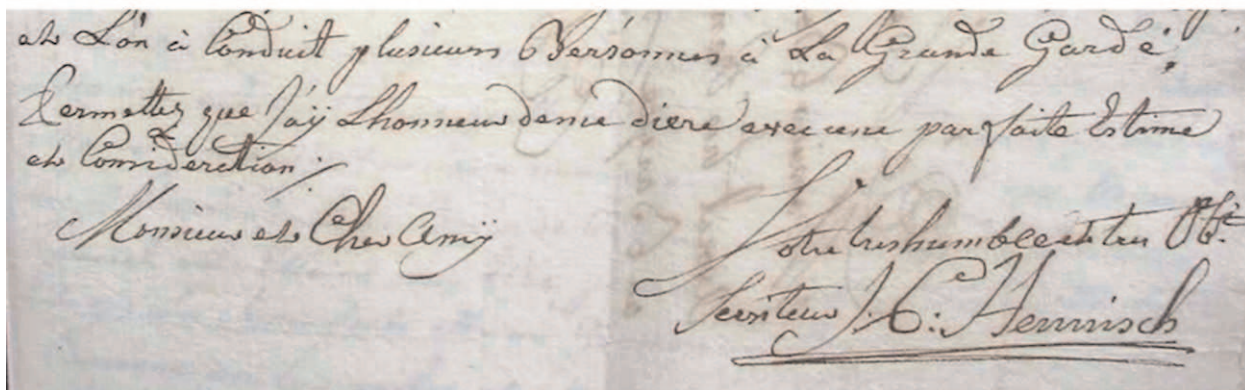 et L'on à Conduit plusieurs Personnes à La Grande Garde,
Permettez que J'aÿ Lhonneur de me diere avec une parfaite Estime
et Consideration
Monsieur et Cher Amÿ
Votre tres humble et tres Obt.
Serviteur J. C. Hennisch